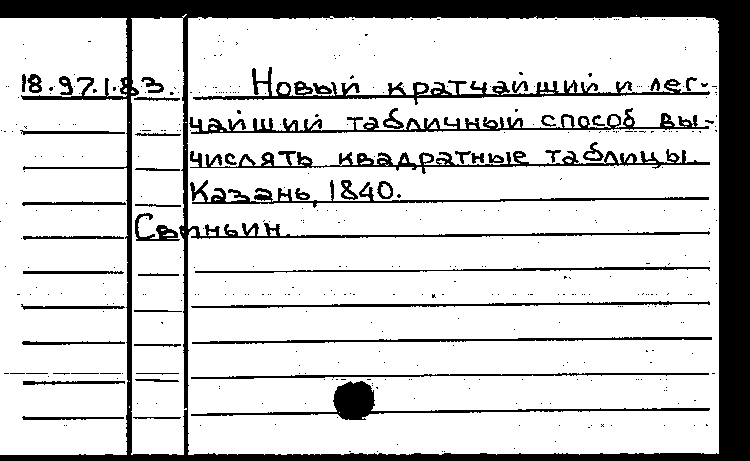 18.97.1.83. Новый кратчайший и лег-
чайший табличный способ вы-
числять квадратные таблицы.
Казань, 1840.
Свиньин.